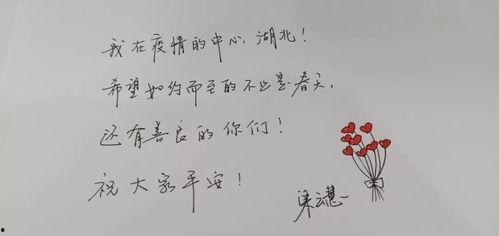 我在疫情的中心，湖北！
希望如约而至的不止是春天，
还有善良的你们！
祝大家平安！